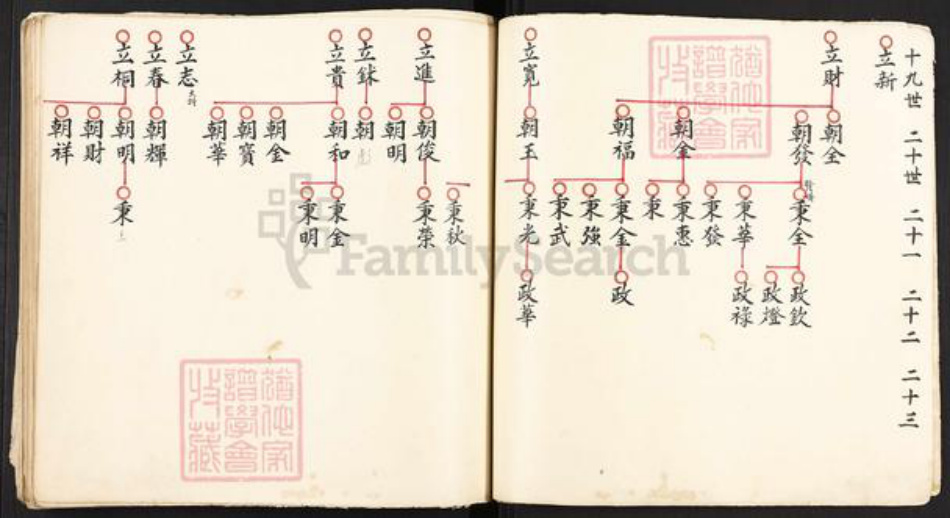 十九世
二十世
二十一
二十二
二十三
立新
立財
朝全
朝發
秉全
政欽
政燈
秉華
政祿
秉發
朝金
秉惠
秉
朝福
秉金
政
秉強
秉武
立寬
朝玉
秉光
政華
秉秋
立進
朝俊
秉榮
朝明
立銇
朝
立貴
朝和
秉金
秉明
朝金
朝寶
朝華
立志
立春
朝輝
立桐
朝明
秉
朝財
朝祥
猶他家
譜學會
收藏
猶他家
譜學會
收藏
FamilySearch